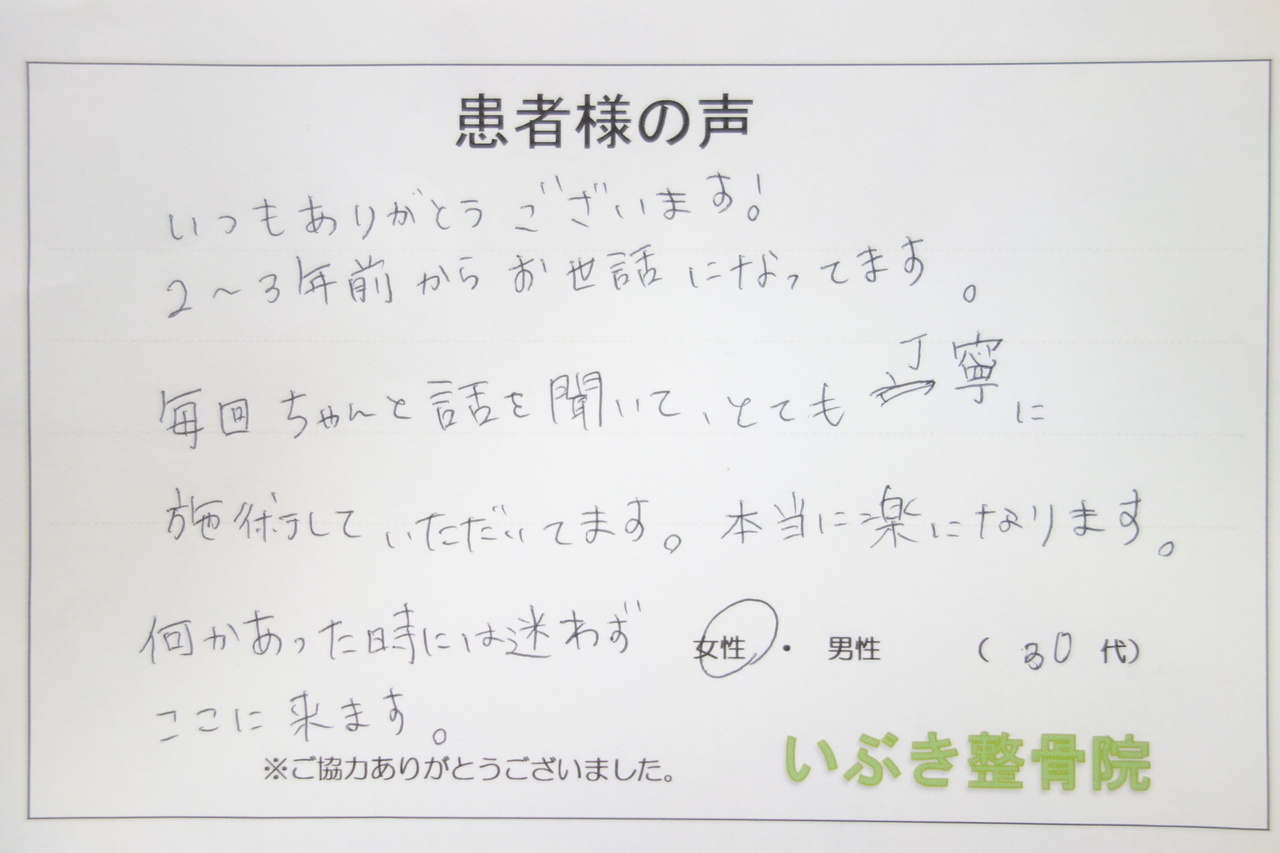 患者様の声
いつもありがとうございます!
2～3年前からお世話になってます。
毎回ちゃんと話を聞いて、とても丁寧に
施術していただいてます。本当に楽になります。
何かあった時には迷わず
ここに来ます。
女性・男性 (30代)
※ご協力ありがとうございました。
いぶき整骨院